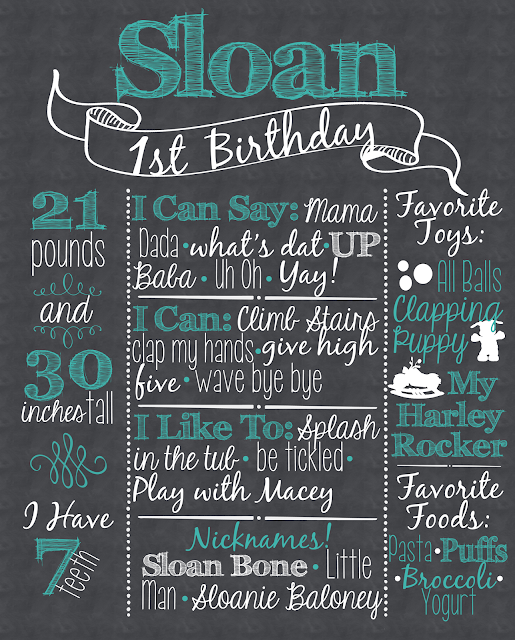 Sloan
1st Birthday
21
pounds
and
30
inches tall
I Have
7
teeth
I Can Say: Mama
Dada • what's dat • UP
Baba • Uh Oh • Yay!
I Can: Climb Stairs
clap my hands • give high
five • wave bye bye
I Like To: Splash
in the tub • be tickled •
Play with Macey
Nicknames!
Sloan Bone • Little
Man • Sloanie Baloney
Favorite
Toys:
All Balls
Clapping
Puppy
My
Harley
Rocker
Favorite
Foods:
Pasta • Puffs
• Broccoli •
Yogurt